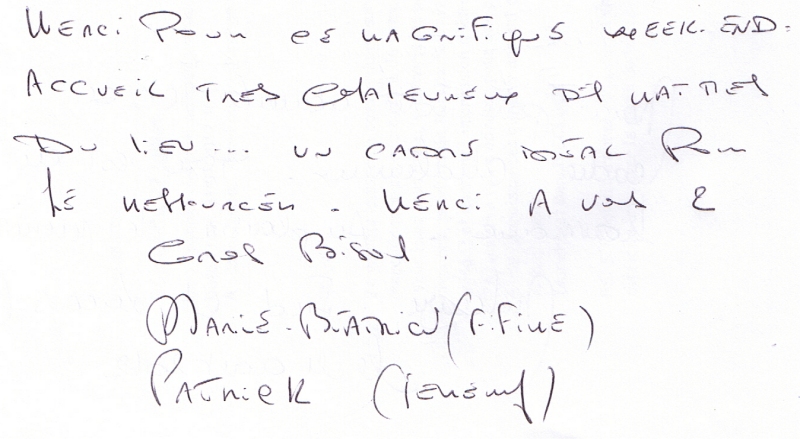 Merci Pour ce MAGNIFIQUE WEEK.END.
ACCUEIL TRES CHALEUREUX DES MAITRES
DU LIEU... UN CADRE IDEAL POUR
SE RESSOURCER. MERCI A VOUS 2
Gros Bisous.
MARIE-BEATRICE (FIFINE)
PATRICK